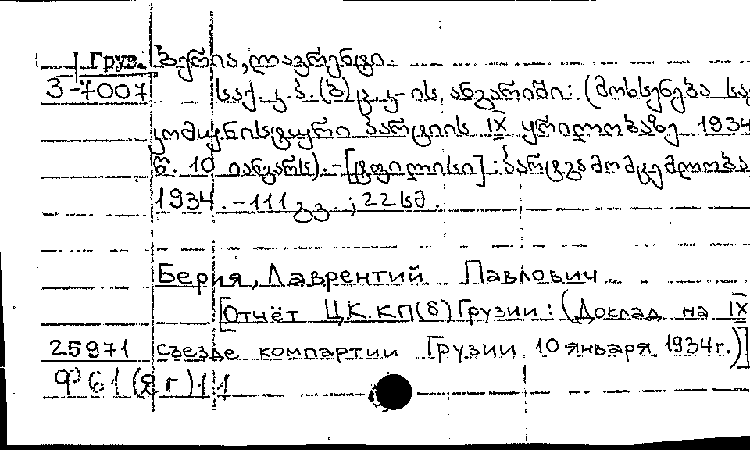 Груз. ბერია, ლავრენტი.
3-7007 საქ. კ. პ. (ბ) ც. კ-ის ანგარიში: (მოხსენება სა
კომუნისტური პარტიის IX ყრილობაზე 1934
წ. 10 იანვარს). - [ტფილისი]: პარტგამომცემლობა
1934. - 111 გვ. ; 22 სმ.
Берия, Лаврентий Павлович
[Отчёт ЦК КП(б) Грузии: (Доклад на IX
25971 съезде компартии Грузии 10 января 1934г.)]